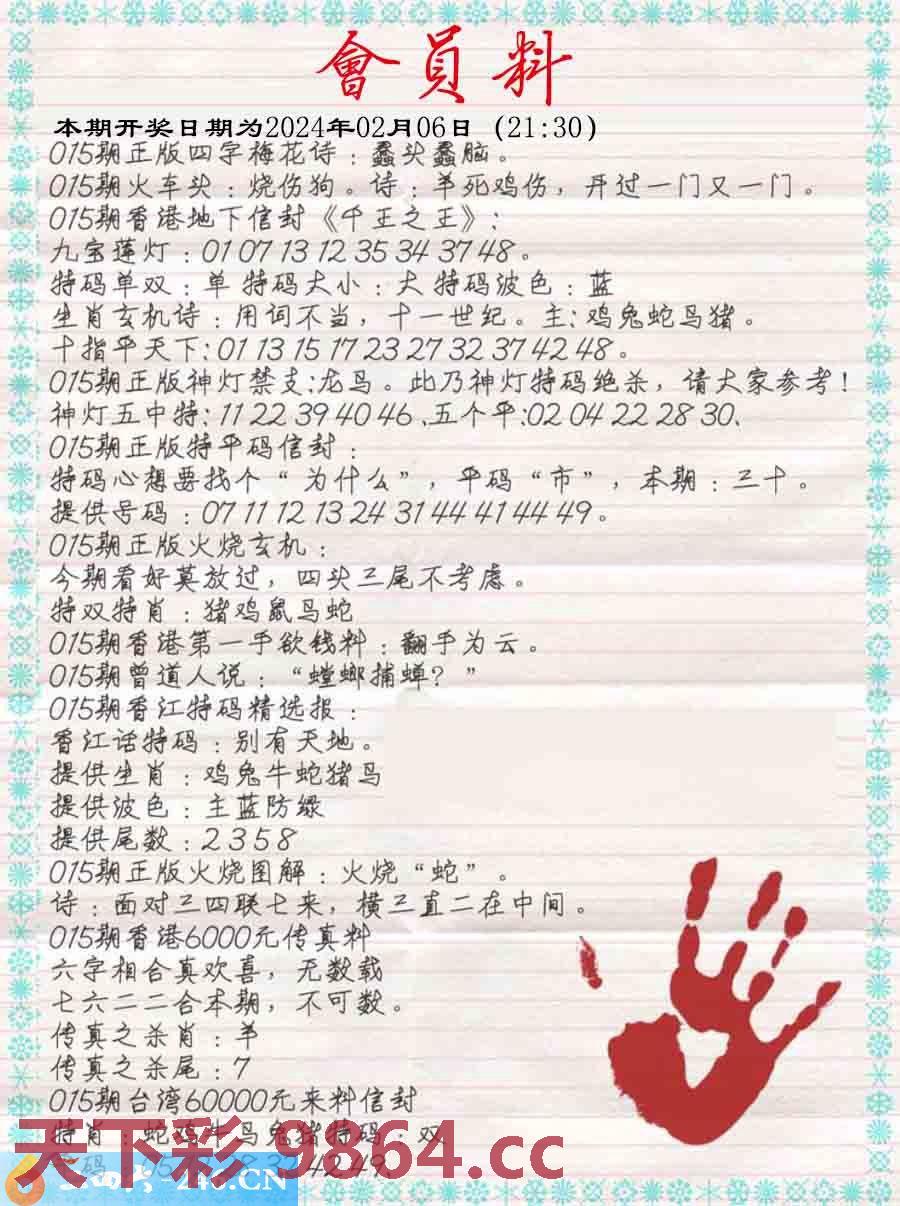 會員料
本期开奖日期为2024年02月06日 (21:30)
015期正版四字梅花诗：蠢头蠢脑。
015期火车头：烧伤狗。诗：羊死鸡伤，开过一门又一门。
015期香港地下信封《千王之王》：
九宝莲灯：01 07 13 12 35 34 37 48。
特码单双：单 特码大小：大 特码波色：蓝
生肖玄机诗：用词不当，十一世纪。主：鸡兔蛇马猪。
十指平天下：01 13 15 17 23 27 32 37 42 48。
015期正版神灯禁支：龙马。此乃神灯特码绝杀，请大家参考！
神灯五中特：11 22 39 40 46、五个平：02 04 22 28 30、
015期正版特平码信封：
特码心想要找个“为什么”，平码“市”，本期：三十。
提供号码：07 11 12 13 24 31 44 41 44 49。
015期正版火烧玄机：
今期看好莫放过，四头三尾不考虑。
特双特肖：猪鸡鼠马蛇
015期香港第一手欲钱料：翻手为云。
015期曾道人说：“螳螂捕蝉？”
015期香江特码精选报：
香江话特码：别有天地。
提供生肖：鸡兔牛蛇猪马
提供波色：主蓝防绿
提供尾数：2 3 5 8
015期正版火烧图解：火烧“蛇”。
诗：面对三四联七来，横三直二在中间。
015期香港6000元传真料
六字相合真欢喜，无数载
七六二二合本期，不可数。
传真之杀肖：羊
传真之杀尾：7
015期台湾60000元来料信封
特肖：蛇鸡牛马兔猪特码：双
天下彩 9864.cc
42 49
246.CN